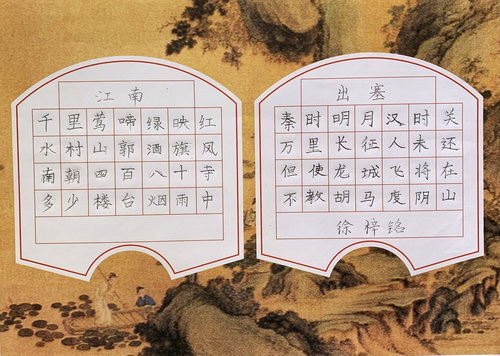 江南
千里莺啼绿映红
水村山郭酒旗风
南朝四百八十寺
多少楼台烟雨中
出塞
秦时明月汉时关
万里长征人未还
但使龙城飞将在
不教胡马度阴山
徐梓铭